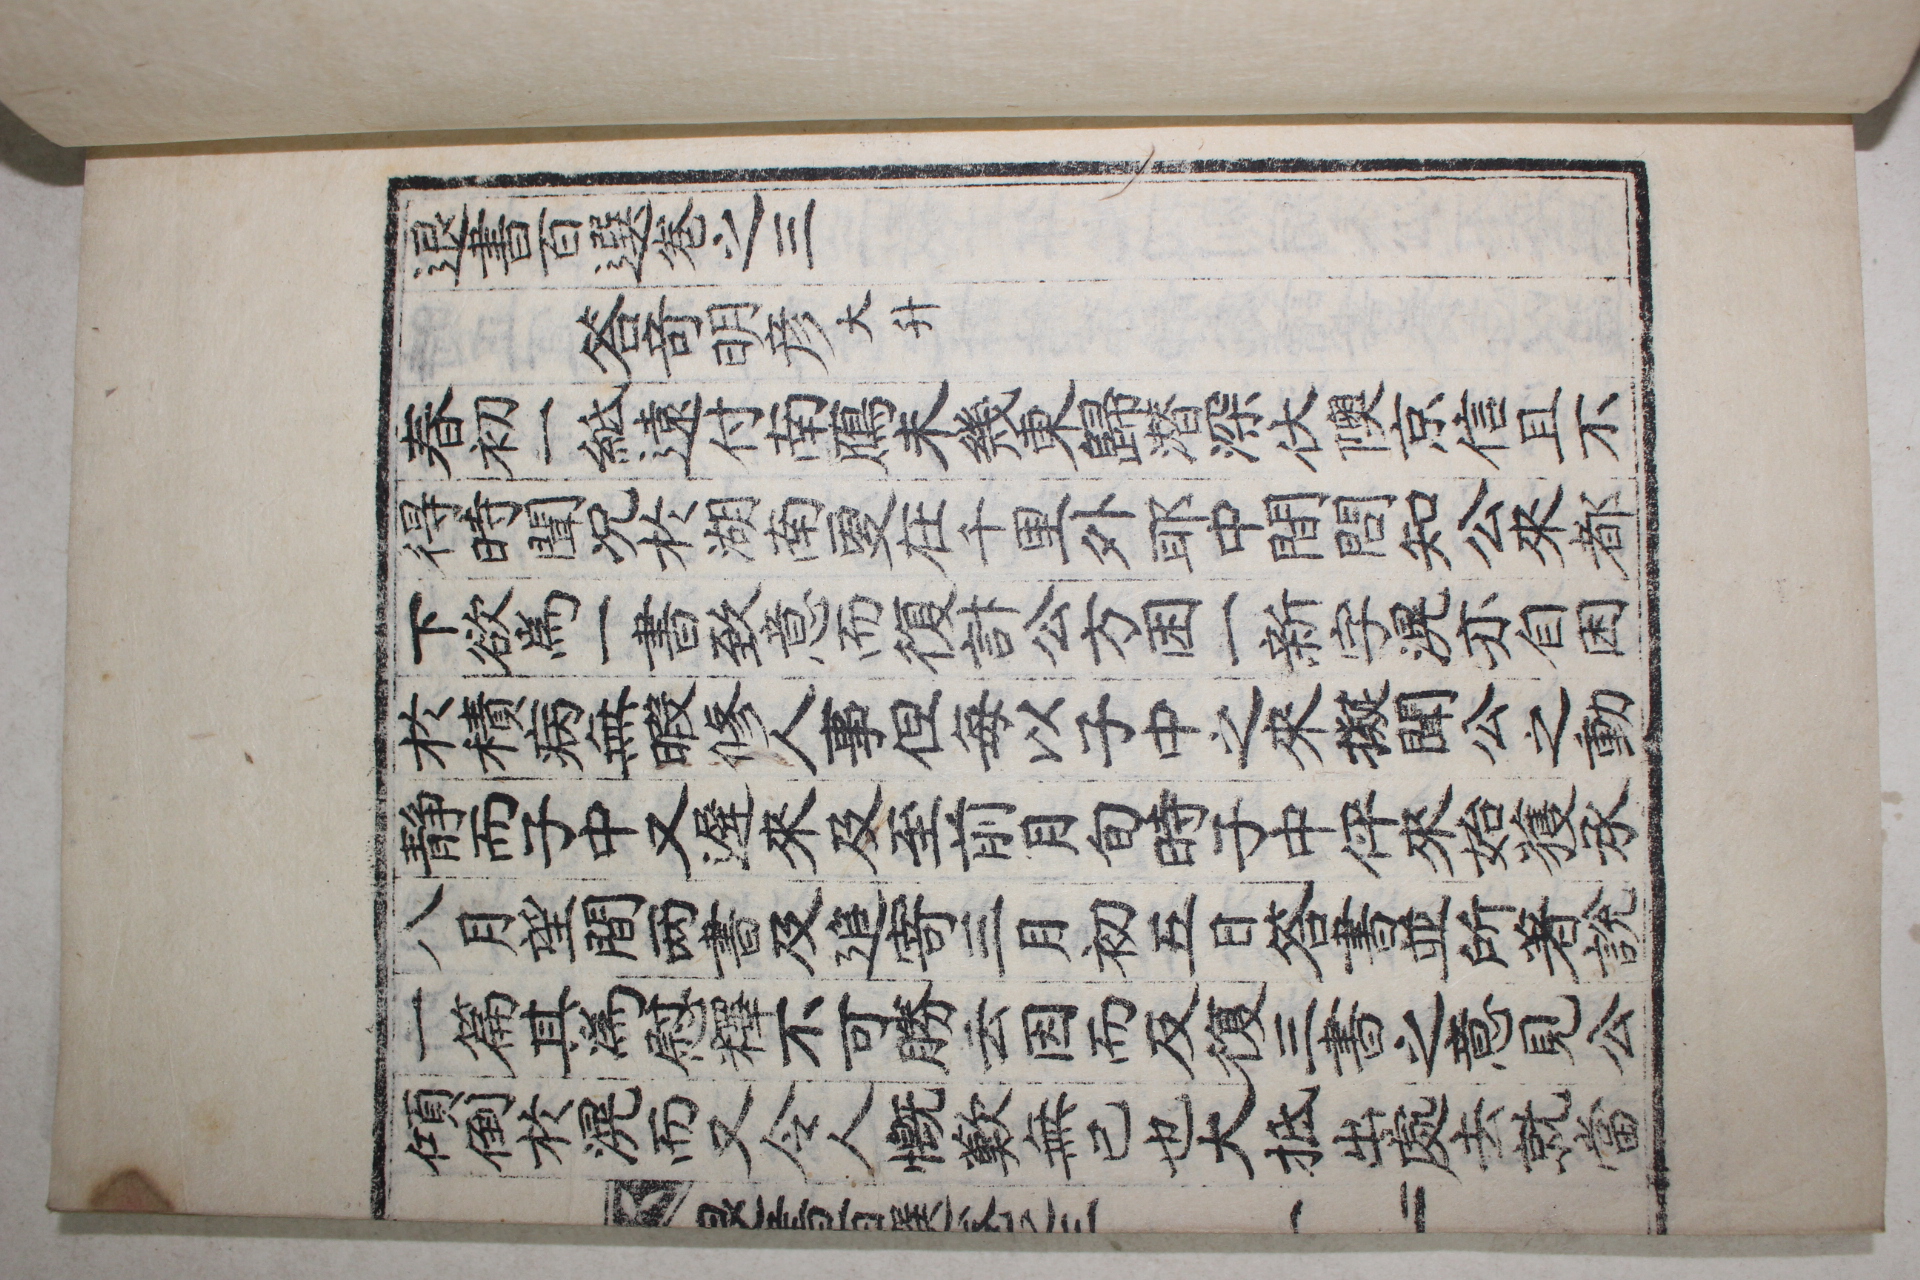 退書百選卷之三
答奇明彥大升
春初一紙遠付南鴈未幾東歸潛深伏隩京信且不
得時聞況於湖南更在千里外耶中間問知公來都
下欲爲一書致意而復計公方困一新字滉亦自困
於積病無暇修人事但每以子中之來擬聞公之動
靜而子中又遲來及至前月旬時子中伻來始獲承
八月望間兩書及追寄三月初五日答書並所著說
一篇其爲慰釋不可勝云因而反復三書之意見公
傾倒於滉而又令人慨歎無已也大抵出處去就當
退書百選卷之三 一 二